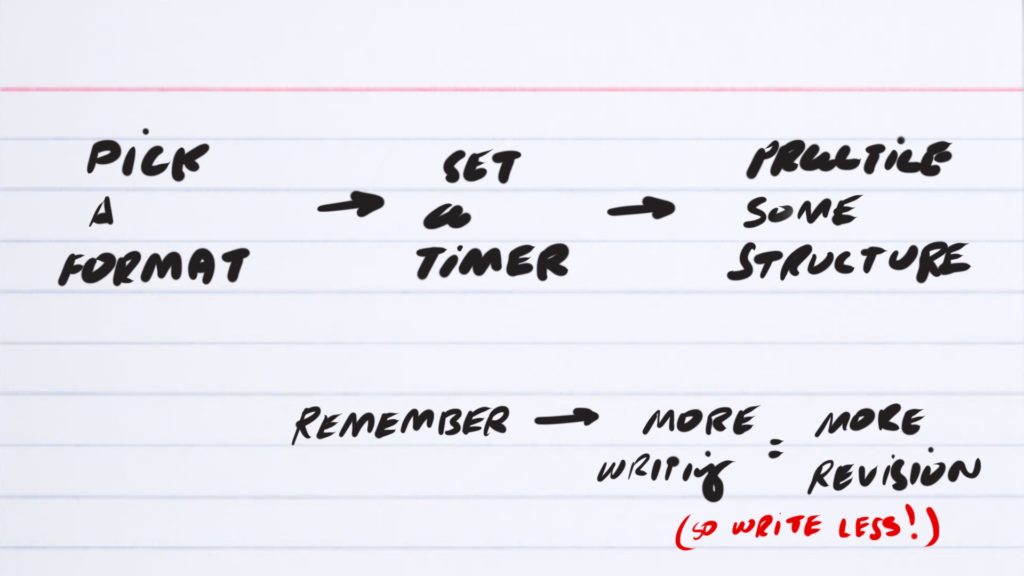 PICK
A
FORMAT
→
SET
a
TIMER
→
PRACTICE
SOME
STRUCTURE
REMEMBER → MORE WRITING = MORE REVISION
(SO WRITE LESS!)